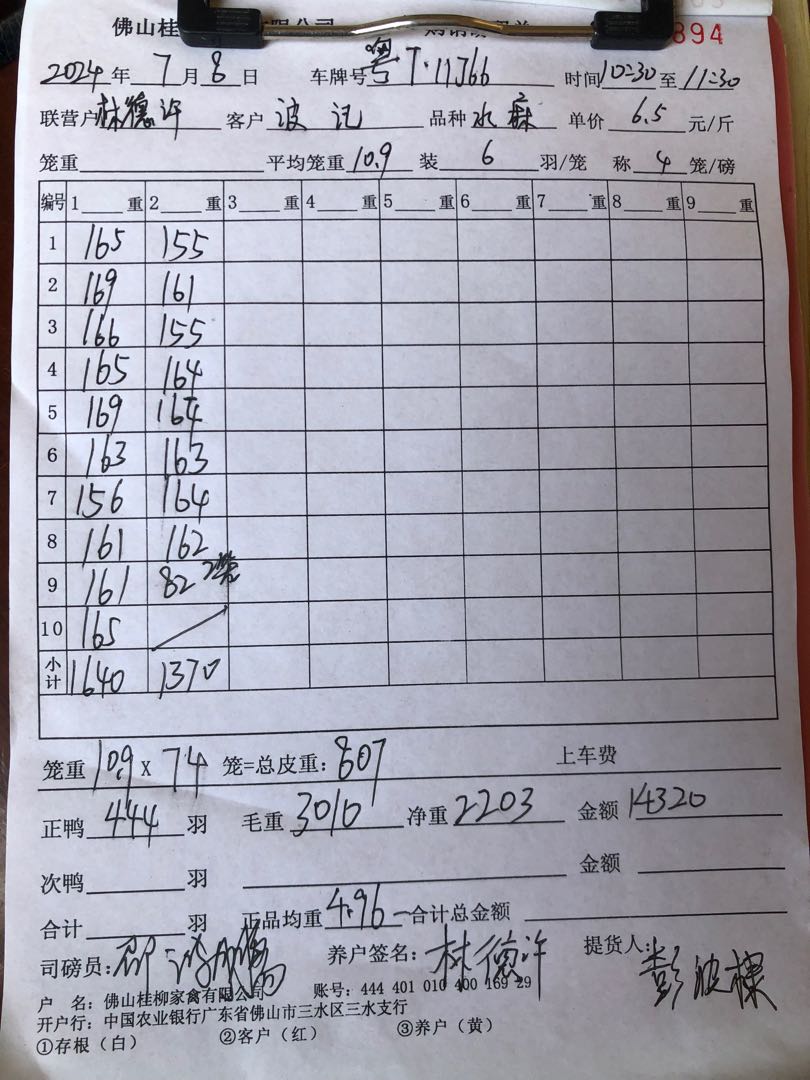 佛山桂 894
2024年 7月 8日 车牌号 粤T·11J66 时间 10=30 至 11=30
联营户 林德许 客户 波记 品种 水麻 单价 6.5 元/斤
笼重 平均笼重 10.9 装 6 羽/笼 称 4 笼/磅
编号 1 重 2 重 3 重 4 重 5 重 6 重 7 重 8 重 9 重
1 165 155
2 169 161
3 166 155
4 165 164
5 169 164
6 163 163
7 156 164
8 161 162
9 161 82 2笼
10 165
小计 1640 1370
笼重 10.9 X 74 笼=总皮重: 807 上车费
正鸭 444 羽 毛重 3010 净重 2203 金额 14320
次鸭 羽 金额
合计 羽 正品均重 4.96 合计总金额
司磅员: 养户签名: 林德许 提货人: 彭波棣
户 名: 佛山桂柳家禽有限公司 账号: 444 401 010 400 169 29
开户行: 中国农业银行广东省佛山市三水区三水支行
①存根(白) ②客户(红) ③养户(黄)